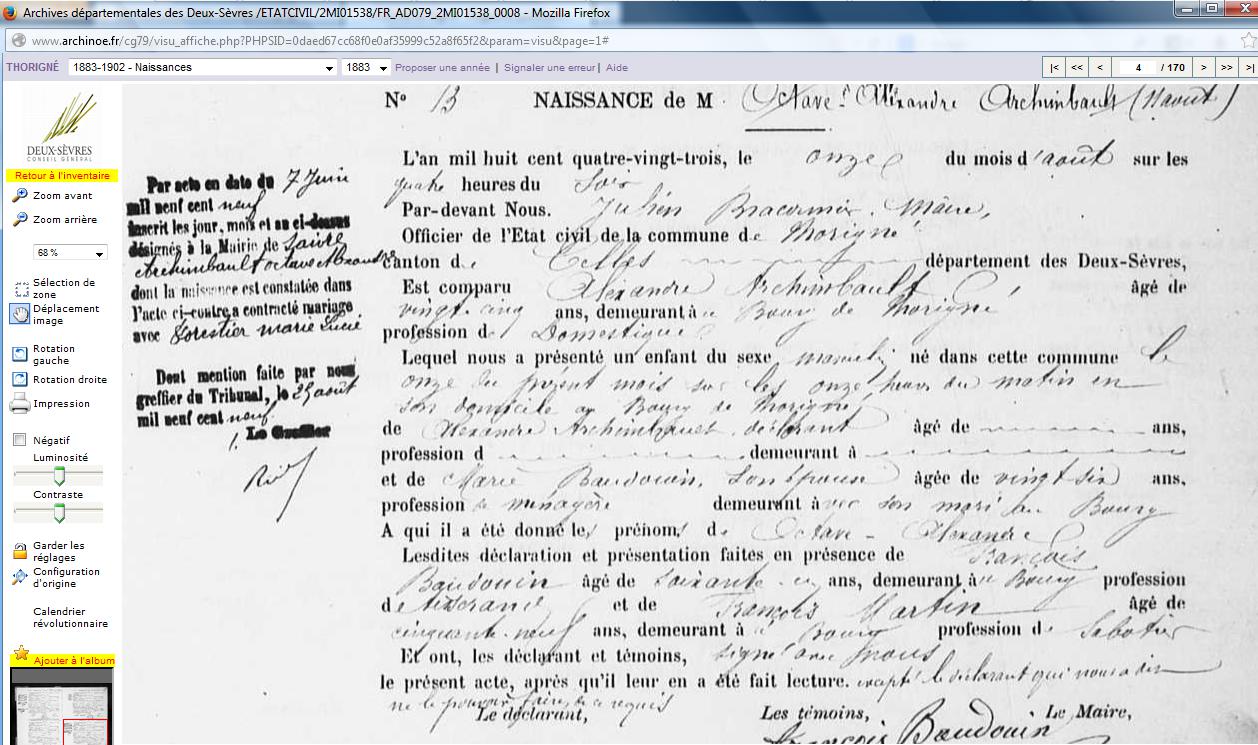 Archives départementales des Deux-Sèvres /ETATCIVIL/2MI01538/FR_AD079_2MI01538_0008 - Mozilla Firefox
www.archinoe.fr/cg79/visu_affiche.php?PHPSID=0daed67cc68f0e0af35999c52a8f65f2&param=visu&page=1#
THORIGNÉ 1883-1902 - Naissances 1883 Proposer une année | Signaler une erreur | Aide |< << < 4 / 170 > >> >|
DEUX-SÈVRES
CONSEIL GÉNÉRAL
Retour à l'inventaire
Zoom avant
Zoom arrière
68 %
Sélection de
zone
Déplacement
image
Rotation
gauche
Rotation droite
Impression
Négatif
Luminosité
Contraste
Garder les
réglages
Configuration
d'origine
Calendrier
révolutionnaire
Ajouter à l'album
Par acte en date du 7 Juin
mil neuf cent neuf
inscrit les jour, mois et an ci-dessus
désignés à la Mairie de Saivre
Archimbault octave Alexandre
dont la naissance est constatée dans
l'acte ci-contre a contracté mariage
avec Forestier marie Lucie
Dont mention faite par nous
greffier du Tribunal, le 25 août
mil neuf cent neuf.
Le Greffier
No 13 NAISSANCE de M Octave Alexandre Archimbault (11 aout)
L'an mil huit cent quatre-vingt-trois, le onze du mois d'août sur les
quatre heures du Soir
Par-devant Nous. Julien Maire,
Officier de l'Etat civil de la commune de Thorigné
canton de Celles département des Deux-Sèvres,
Est comparu Alexandre Archimbault âgé de
vingt-cinq ans, demeurant au Bourg de Thorigné
profession de Domestique
Lequel nous a présenté un enfant du sexe masculin né dans cette commune le
onze du présent mois sur les onze heures du matin en
son domicile au Bourg de Thorigné
de Alexandre Archimbault, déclarant âgé de ans,
profession d demeurant à
et de Marie Baudouin, Son épouse âgée de vingt six ans,
profession de ménagère demeurant avec son mari au Bourg
A qui il a été donné les prénoms de Octave - Alexandre
Lesdites déclaration et présentation faites en présence de François
Baudouin âgé de soixante ans, demeurant au Bourg profession
de tisserand et de François Martin âgé de
cinquante-neuf ans, demeurant au Bourg profession de Sabotier
Et ont, les déclarant et témoins, signé avec nous
le présent acte, après qu'il leur en a été fait lecture. excepté le déclarant qui nous a dit
ne le pouvoir faire de ce requis
Le déclarant, Les témoins, Le Maire,
François Baudouin